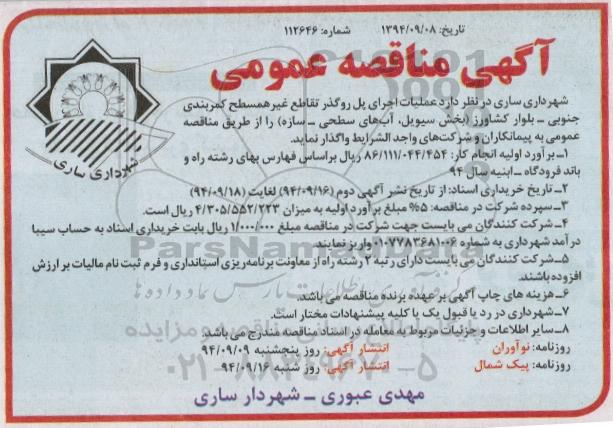 تاریخ: ۱۳۹۴/۰۹/۰۸ شماره: ۱۱۲۶۴۶
آگهی مناقصه عمومی
شهرداری ساری
شهرداری ساری در نظر دارد عملیات اجرای پل روگذر تقاطع غیر همسطح کمربندی
جنوبی ـ بلوار کشاورز (بخش سیویل، آب‌های سطحی ـ سازه) را از طریق مناقصه
عمومی به پیمانکاران و شرکت‌های واجد الشرایط واگذار نماید.
۱ـ برآورد اولیه انجام کار: ۸۶/۱۱۱/۰۴۴/۴۵۴ ریال براساس فهارس بهای رشته راه و
باند فرودگاه ـ ابنیه سال ۹۴
۲ـ تاریخ خریداری اسناد: از تاریخ نشر آگهی دوم (۹۴/۰۹/۱۶) لغایت (۹۴/۰۹/۱۸)
۳ـ سپرده شرکت در مناقصه: ۵% مبلغ برآورد اولیه به میزان ۴/۳۰۵/۵۵۲/۲۲۳ ریال است.
۴ـ شرکت کنندگان می بایست جهت شرکت در مناقصه مبلغ ۱/۰۰۰/۰۰۰ ریال بابت خریداری اسناد به حساب سیبا
درآمد شهرداری به شماره ۰۱۰۷۷۸۳۶۸۱۰۰۶ واریز نمایند.
۵ـ شرکت کنندگان می بایست دارای رتبه ۲ رشته راه از معاونت برنامه ریزی استانداری و فرم ثبت نام مالیات بر ارزش
افزوده باشند.
۶ـ هزینه های چاپ آگهی بر عهده برنده مناقصه می باشد.
۷ـ شهرداری در رد یا قبول یک یا کلیه پیشنهادات مختار است.
۸ـ سایر اطلاعات و جزئیات مربوط به معامله در اسناد مناقصه مندرج می باشد.
روزنامه: نوآوران انتشار آگهی: روز پنجشنبه ۹۴/۰۹/۰۹
روزنامه: پیک شمال انتشار آگهی: روز شنبه ۹۴/۰۹/۱۶
مهدی عبوری ـ شهردار ساری
ParsNamadData
۰۲۱-۸۸۳۴۹۶۷۰-۵